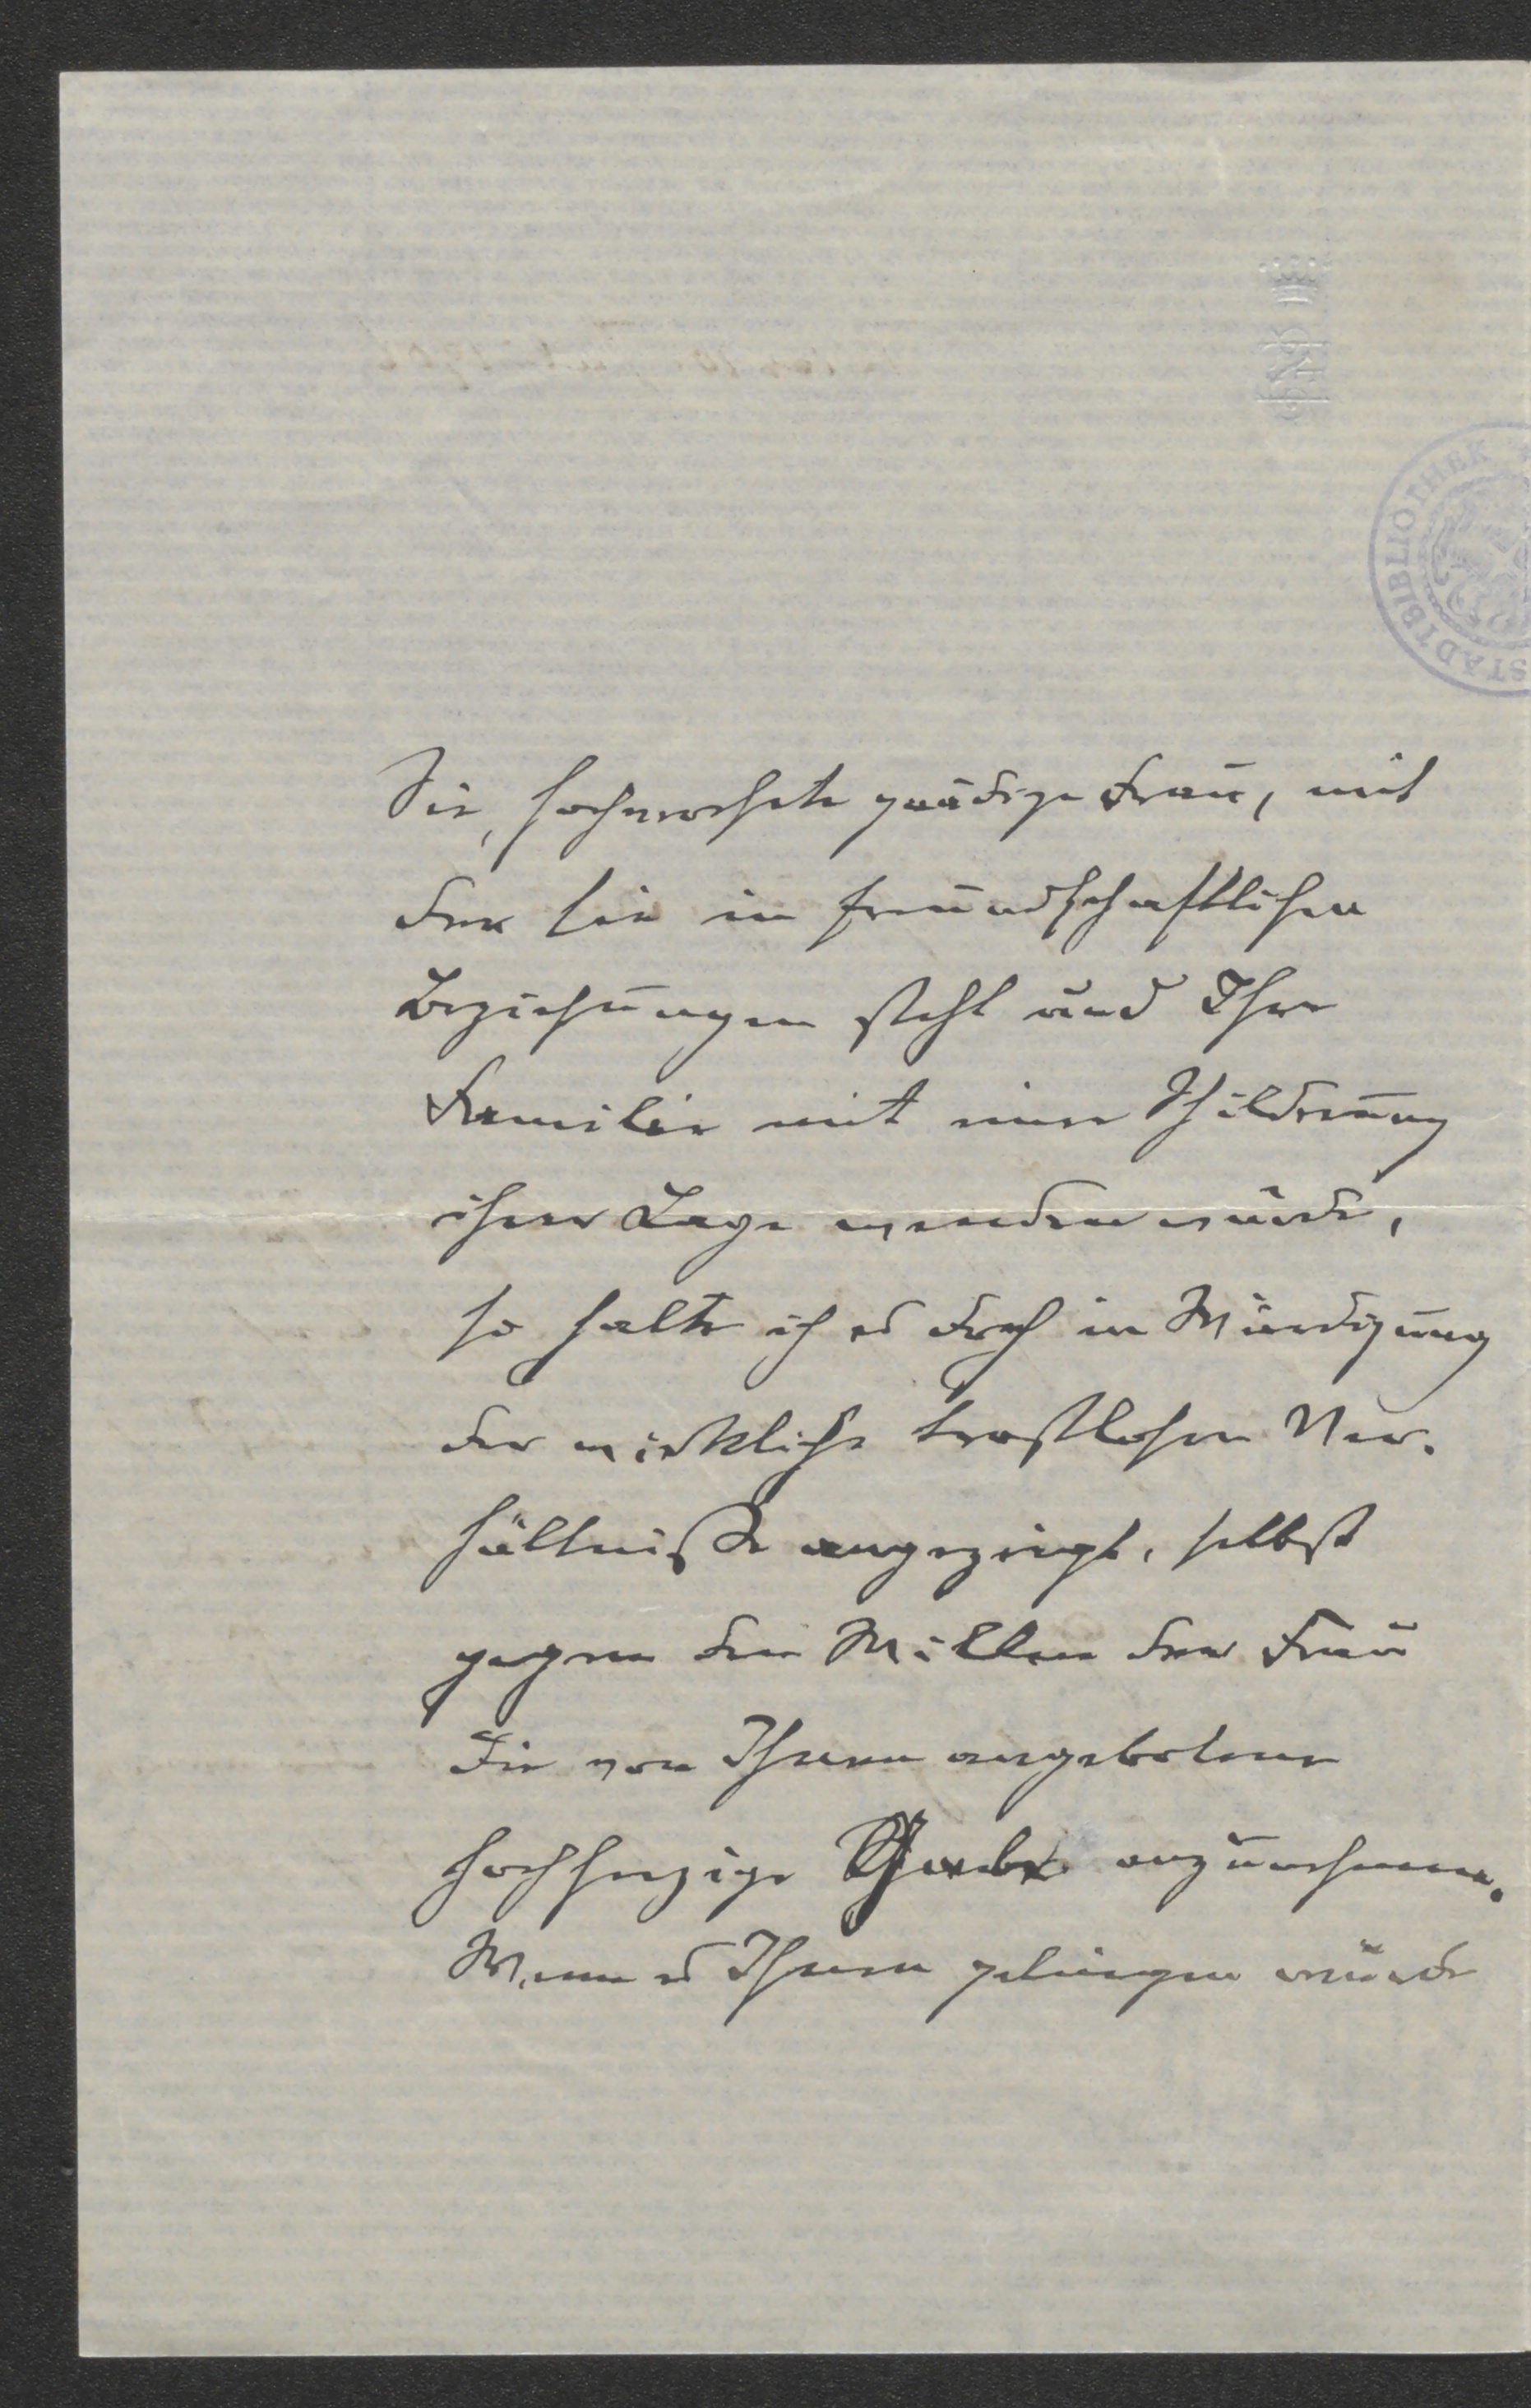 STADTBIBLIOTHEK
Sie, hochverehrte gnädige Frau, mit
der sie in freundschaftlichen
Beziehungen steht und Ihre
Familie mit einer Schilderung
ihrer Lage wenden würde,
so halte ich es doch in Würdigung
der wirklich trostlosen Ver-
hältniße angezeigt, selbst
gegen den Willen der Frau
die von Ihnen angebotene
hochherzige Gabe anzunehmen.
Wenn es Ihnen gelingen würde